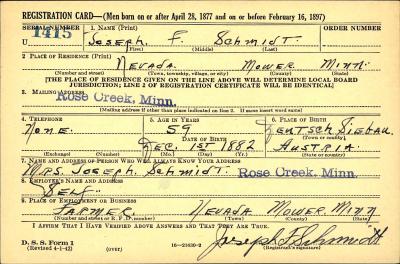 REGISTRATION CARD—(Men born on or after April 28, 1877 and on or before February 16, 1897)
SERIAL NUMBER 1. NAME (Print) ORDER NUMBER
U 1415 JOSEPH F. SCHMIDT
(First) (Middle) (Last)
2. PLACE OF RESIDENCE (Print)
NEVADA MOWER MINN
(Number and street) (Town, township, village, or city) (County) (State)
[THE PLACE OF RESIDENCE GIVEN ON THE LINE ABOVE WILL DETERMINE LOCAL BOARD
JURISDICTION; LINE 2 OF REGISTRATION CERTIFICATE WILL BE IDENTICAL]
3. MAILING ADDRESS
Rose Creek, Minn.
[Mailing address if other than place indicated on line 2. If same insert word same]
4. TELEPHONE 5. AGE IN YEARS 6. PLACE OF BIRTH
NONE 59 DEUTSCH
DATE OF BIRTH (Town or county)
DEC. 1ST 1882 AUSTRIA
(Exchange) (Number) (Mo.) (Day) (Yr.) (State or country)
7. NAME AND ADDRESS OF PERSON WHO WILL ALWAYS KNOW YOUR ADDRESS
MRS. JOSEPH SCHMIDT Rose Creek, Minn.
8. EMPLOYER'S NAME AND ADDRESS
SELF
9. PLACE OF EMPLOYMENT OR BUSINESS
FARMER NEVADA MOWER MINN
(Number and street or R. F. D. number) (Town) (County) (State)
I AFFIRM THAT I HAVE VERIFIED ABOVE ANSWERS AND THAT THEY ARE TRUE.
D. S. S. Form 1 Joseph F Schmidt
(Revised 4-1-42) (over) 16—21630-2 (Registrant's signature)